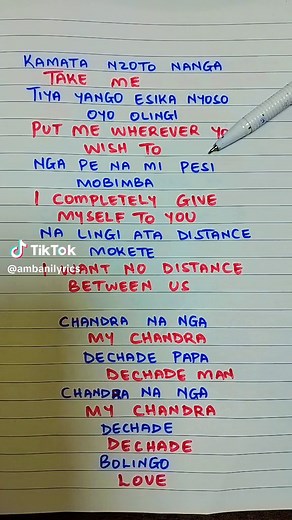 KAMATA NZOTO NANGA
TAKE ME
TIYA YANGO ESIKA NYOSO
OYO OLINGI
PUT ME WHEREVER
WISH TO
NGA PE NA MI PESI
MOBIMBA
I COMPLETELY GIVE
MYSELF TO YOU
NA LINGI ATA DISTANCE
MOKETE
TikTok
@ambanilyrics
WANT NO DISTANCE
BETWEEN US
CHANDRA NA NGA
MY CHANDRA
DECHADE PAPA
DECHADE MAN
CHANDRA NA NGA
MY CHANDRA
DECHADE
DECHADE
BOLINGO
LOVE